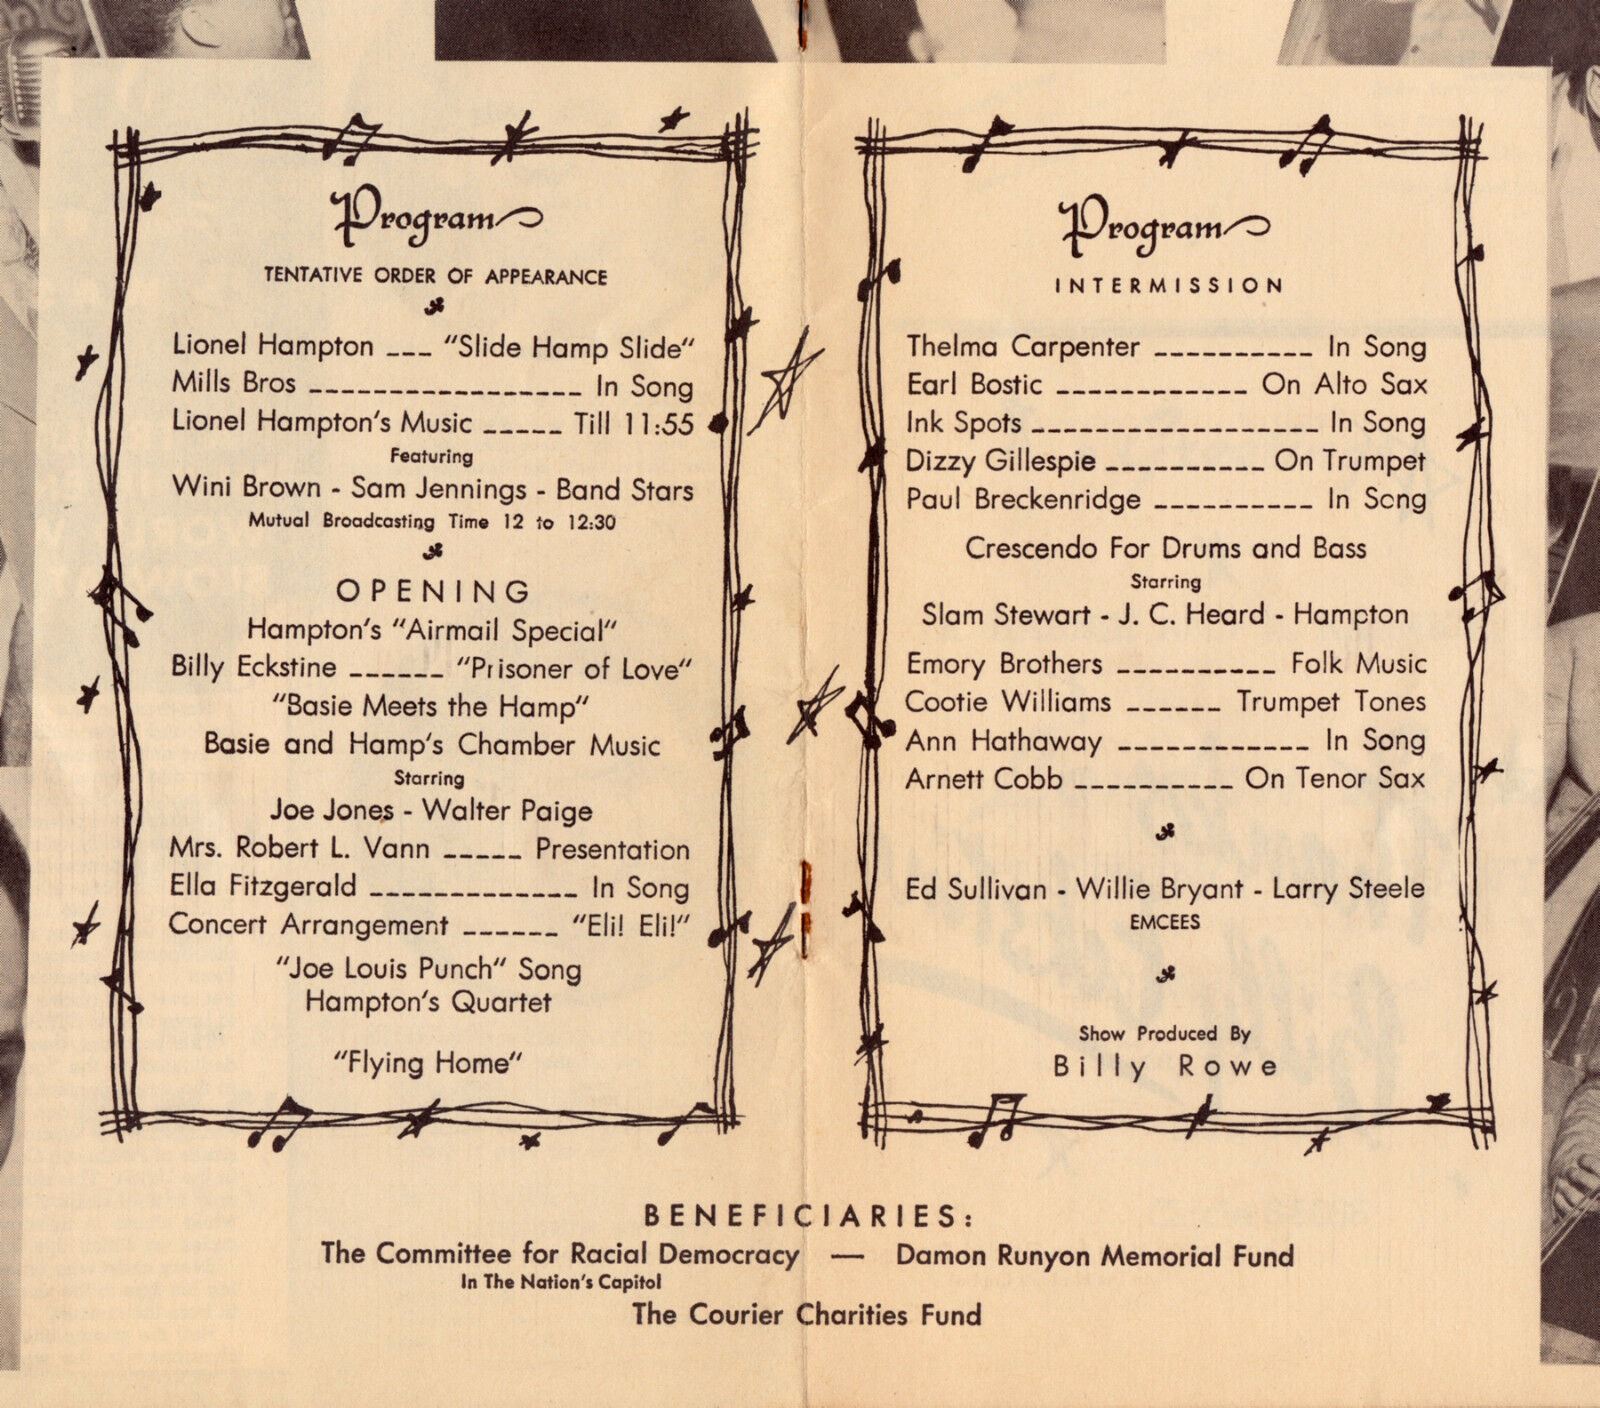 Program
TENTATIVE ORDER OF APPEARANCE
Lionel Hampton --- "Slide Hamp Slide"
Mills Bros ----------------- In Song
Lionel Hampton's Music ----- Till 11:55
Featuring
Wini Brown - Sam Jennings - Band Stars
Mutual Broadcasting Time 12 to 12:30
OPENING
Hampton's "Airmail Special"
Billy Eckstine ------ "Prisoner of Love"
"Basie Meets the Hamp"
Basie and Hamp's Chamber Music
Starring
Joe Jones - Walter Paige
Mrs. Robert L. Vann ----- Presentation
Ella Fitzgerald ------------- In Song
Concert Arrangement ------ "Eli! Eli!"
"Joe Louis Punch" Song
Hampton's Quartet
"Flying Home"
Program
INTERMISSION
Thelma Carpenter ---------- In Song
Earl Bostic ------------ On Alto Sax
Ink Spots ------------------ In Song
Dizzy Gillespie ---------- On Trumpet
Paul Breckenridge ---------- In Song
Crescendo For Drums and Bass
Starring
Slam Stewart - J. C. Heard - Hampton
Emory Brothers ---------- Folk Music
Cootie Williams ------ Trumpet Tones
Ann Hathaway ------------ In Song
Arnett Cobb ---------- On Tenor Sax
Ed Sullivan - Willie Bryant - Larry Steele
EMCEES
Show Produced By
Billy Rowe
BENEFICIARIES:
The Committee for Racial Democracy — Damon Runyon Memorial Fund
In The Nation's Capitol
The Courier Charities Fund